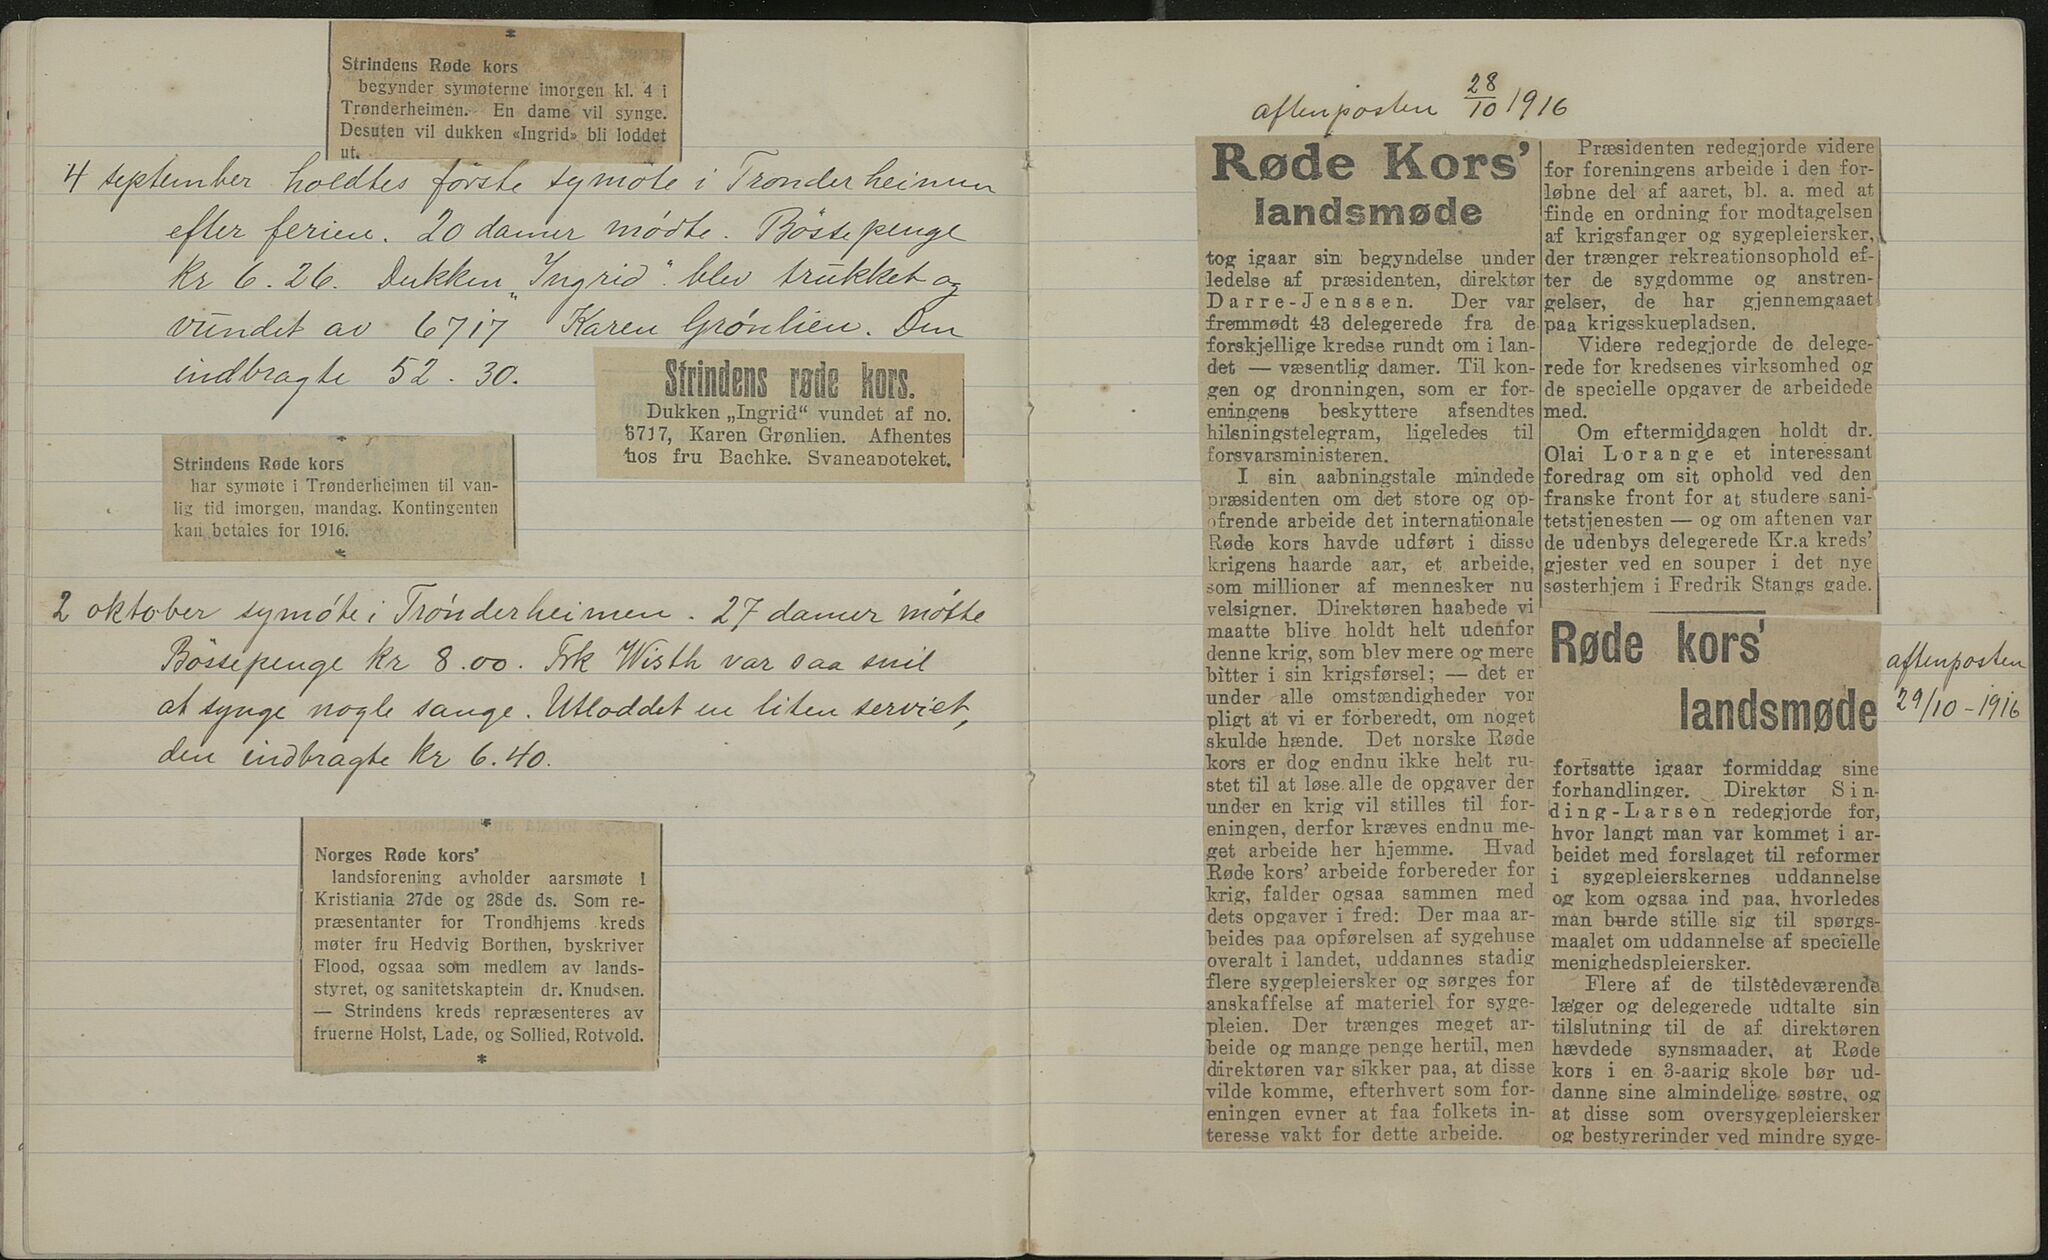 *
Strindens Røde kors
begynder symøterne imorgen kl. 4 i
Trønderheimen. En dame vil synge.
Desuten vil dukken «Ingrid» bli loddet
ut.
4 september holdtes første symøte i Trønderheimen
efter ferien. 20 damer mødte. Bössepenge
kr 6.26. Dukken „Ingrid" blev trukket og
vundet av 6717 Karen Grønlien. Den
indbragte 52.30.
Strindens røde kors.
Dukken „Ingrid" vundet af no.
6717, Karen Grønlien. Afhentes
hos fru Bachke. Svaneapoteket.
*
Strindens Røde kors
har symøte i Trønderheimen til van-
lig tid imorgen, mandag. Kontingenten
kan betales for 1916.
*
2 oktober symøte i Trønderheimen. 27 damer møtte
Bössepenge kr 8.00. Frk Wisth var saa snil
at synge nogle sange. Utloddet en liten serviet,
den indbragte kr 6.40.
*
Norges Røde kors'
landsforening avholder aarsmøte i
Kristiania 27de og 28de ds. Som re-
præsentanter for Trondhjems kreds
møter fru Hedvig Borthen, byskriver
Flood, ogsaa som medlem av lands-
styret, og sanitetskaptein dr. Knudsen.
— Strindens kreds repræsenteres av
fruerne Holst, Lade, og Sollied, Rotvold.
*
aftenposten 28/10 1916
Røde Kors'
landsmøde
tog igaar sin begyndelse under
ledelse af præsidenten, direktør
Darre-Jenssen. Der var
fremmødt 43 delegerede fra de
forskjellige kredse rundt om i lan-
det — væsentlig damer. Til kon-
gen og dronningen, som er for-
eningens beskyttere afsendtes
hilsningstelegram, ligeledes til
forsvarsministeren.
I sin aabningstale mindede
præsidenten om det store og op-
ofrende arbeide det internationale
Røde kors havde udført i disse
krigens haarde aar, et arbeide,
som millioner af mennesker nu
velsigner. Direktøren haabede vi
maatte blive holdt helt udenfor
denne krig, som blev mere og mere
bitter i sin krigsførsel; — det er
under alle omstændigheder vor
pligt at vi er forberedt, om noget
skulde hænde. Det norske Røde
kors er dog endnu ikke helt ru-
stet til at løse alle de opgaver der
under en krig vil stilles til for-
eningen, derfor kræves endnu me-
get arbeide her hjemme. Hvad
Røde kors' arbeide forbereder for
krig, falder ogsaa sammen med
dets opgaver i fred: Der maa ar-
beides paa opførelsen af sygehuse
overalt i landet, uddannes stadig
flere sygepleiersker og sørges for
anskaffelse af materiel for syge-
pleien. Der trænges meget ar-
beide og mange penge hertil, men
direktøren var sikker paa, at disse
vilde komme, efterhvert som for-
eningen evner at faa folkets in-
teresse vakt for dette arbeide.
Præsidenten redegjorde videre
for foreningens arbeide i den for-
løbne del af aaret, bl. a. med at
finde en ordning for modtagelsen
af krigsfanger og sygepleiersker,
der trænger rekreationsophold ef-
ter de sygdomme og anstren-
gelser, de har gjennemgaaet
paa krigsskuepladsen.
Videre redegjorde de delege-
rede for kredsenes virksomhed og
de specielle opgaver de arbeidede
med.
Om eftermiddagen holdt dr.
Olai Lorange et interessant
foredrag om sit ophold ved den
franske front for at studere sani-
tetstjenesten — og om aftenen var
de udenbys delegerede Kr.a kreds'
gjester ved en souper i det nye
søsterhjem i Fredrik Stangs gade.
Røde kors'
landsmøde
aftenposten
29/10 - 1916
fortsatte igaar formiddag sine
forhandlinger. Direktør Sin-
ding-Larsen redegjorde for,
hvor langt man var kommet i ar-
beidet med forslaget til reformer
i sygepleierskernes uddannelse
og kom ogsaa ind paa, hvorledes
man burde stille sig til spørgs-
maalet om uddannelse af specielle
menighedspleiersker.
Flere af de tilstedeværende
læger og delegerede udtalte sin
tilslutning til de af direktøren
hævdede synsmaader, at Røde
kors i en 3-aarig skole bør ud-
danne sine almindelige søstre, og
at disse som oversygepleiersker
og bestyrerinder ved mindre syge-